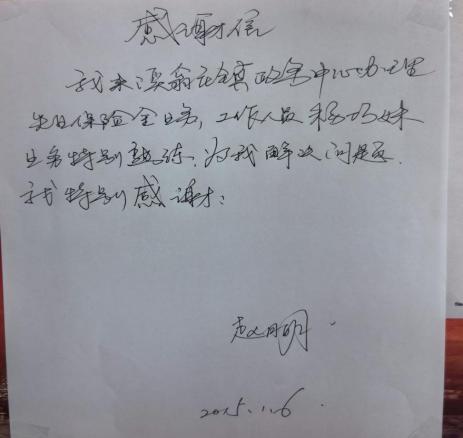 感谢信
我来溪翁庄镇政务中心办理
失业保险金业务，工作人员
业务特别熟练、为我解决问题.
我特别感谢：
赵 明
2015.1.6